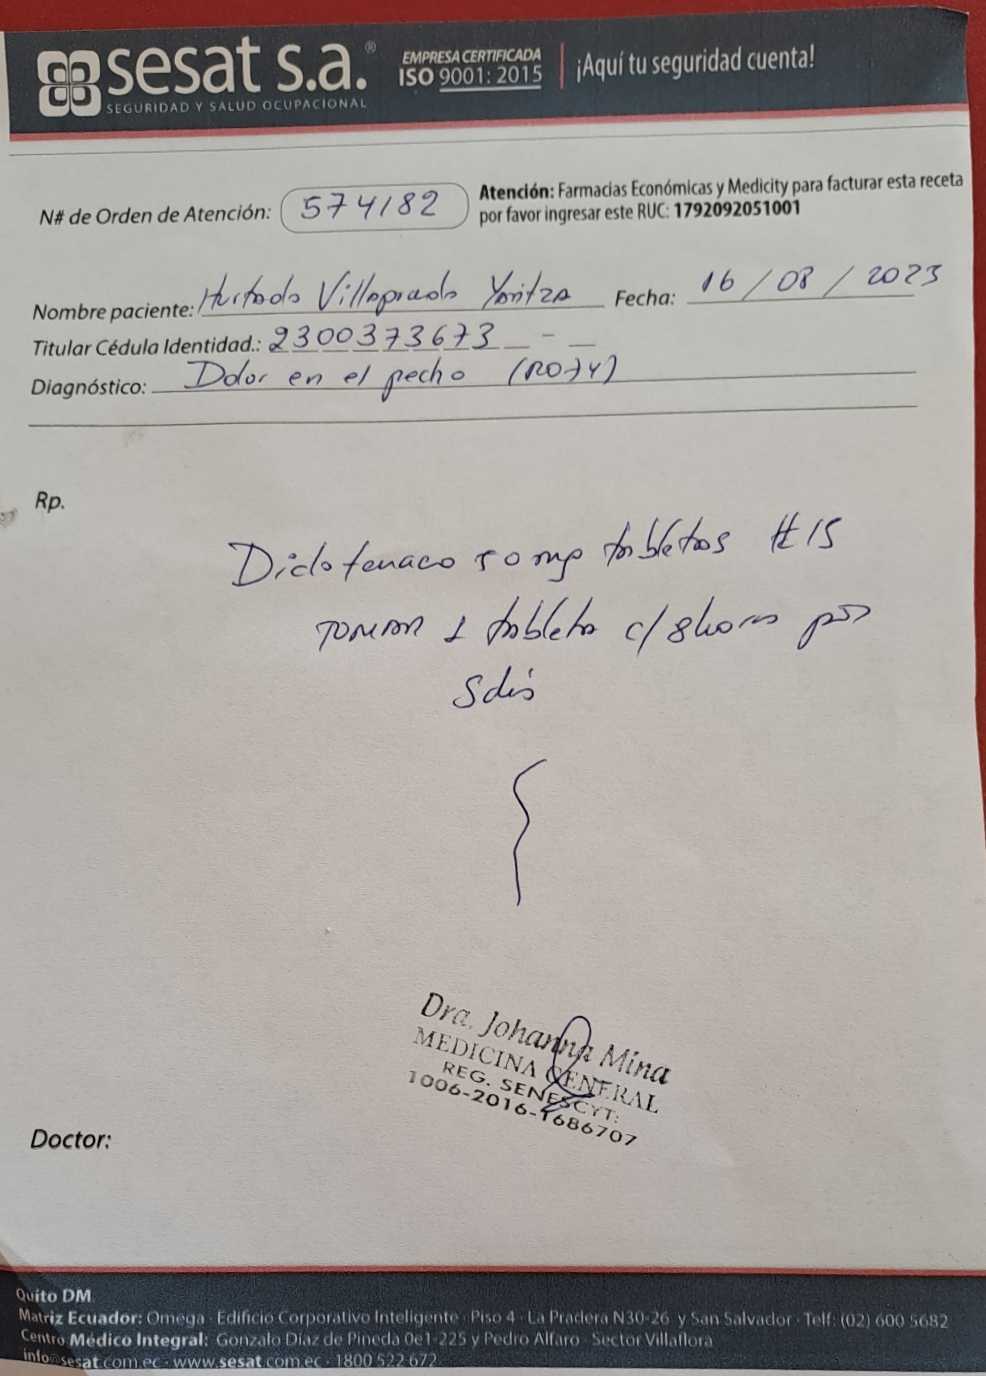 sesat s.a.®
SEGURIDAD Y SALUD OCUPACIONAL
EMPRESA CERTIFICADA
ISO 9001: 2015
¡Aquí tu seguridad cuenta!
N# de Orden de Atención: 574182
Atención: Farmacias Económicas y Medicity para facturar esta receta
por favor ingresar este RUC: 1792092051001
Nombre paciente: Hurtado Villaprado Yaritza Fecha: 16/08/2023
Titular Cédula Identidad.: 2300373673 -
Diagnóstico: Dolor en el pecho (R074)
Rp.
Diclofenaco 50 mg tabletas #15
TOMAR 1 tableta c/8horas por
5días
Dra. Johanna Mina
MEDICINA GENERAL
REG. SENESCYT:
1006-2016-1686707
Doctor:
Quito DM
Matriz Ecuador: Omega - Edificio Corporativo Inteligente - Piso 4 - La Pradera N30-26 y San Salvador - Telf: (02) 600 5682
Centro Médico Integral: Gonzalo Díaz de Pineda 0e1-225 y Pedro Alfaro - Sector Villaflora
info@sesat.com.ec - www.sesat.com.ec - 1800 522 672